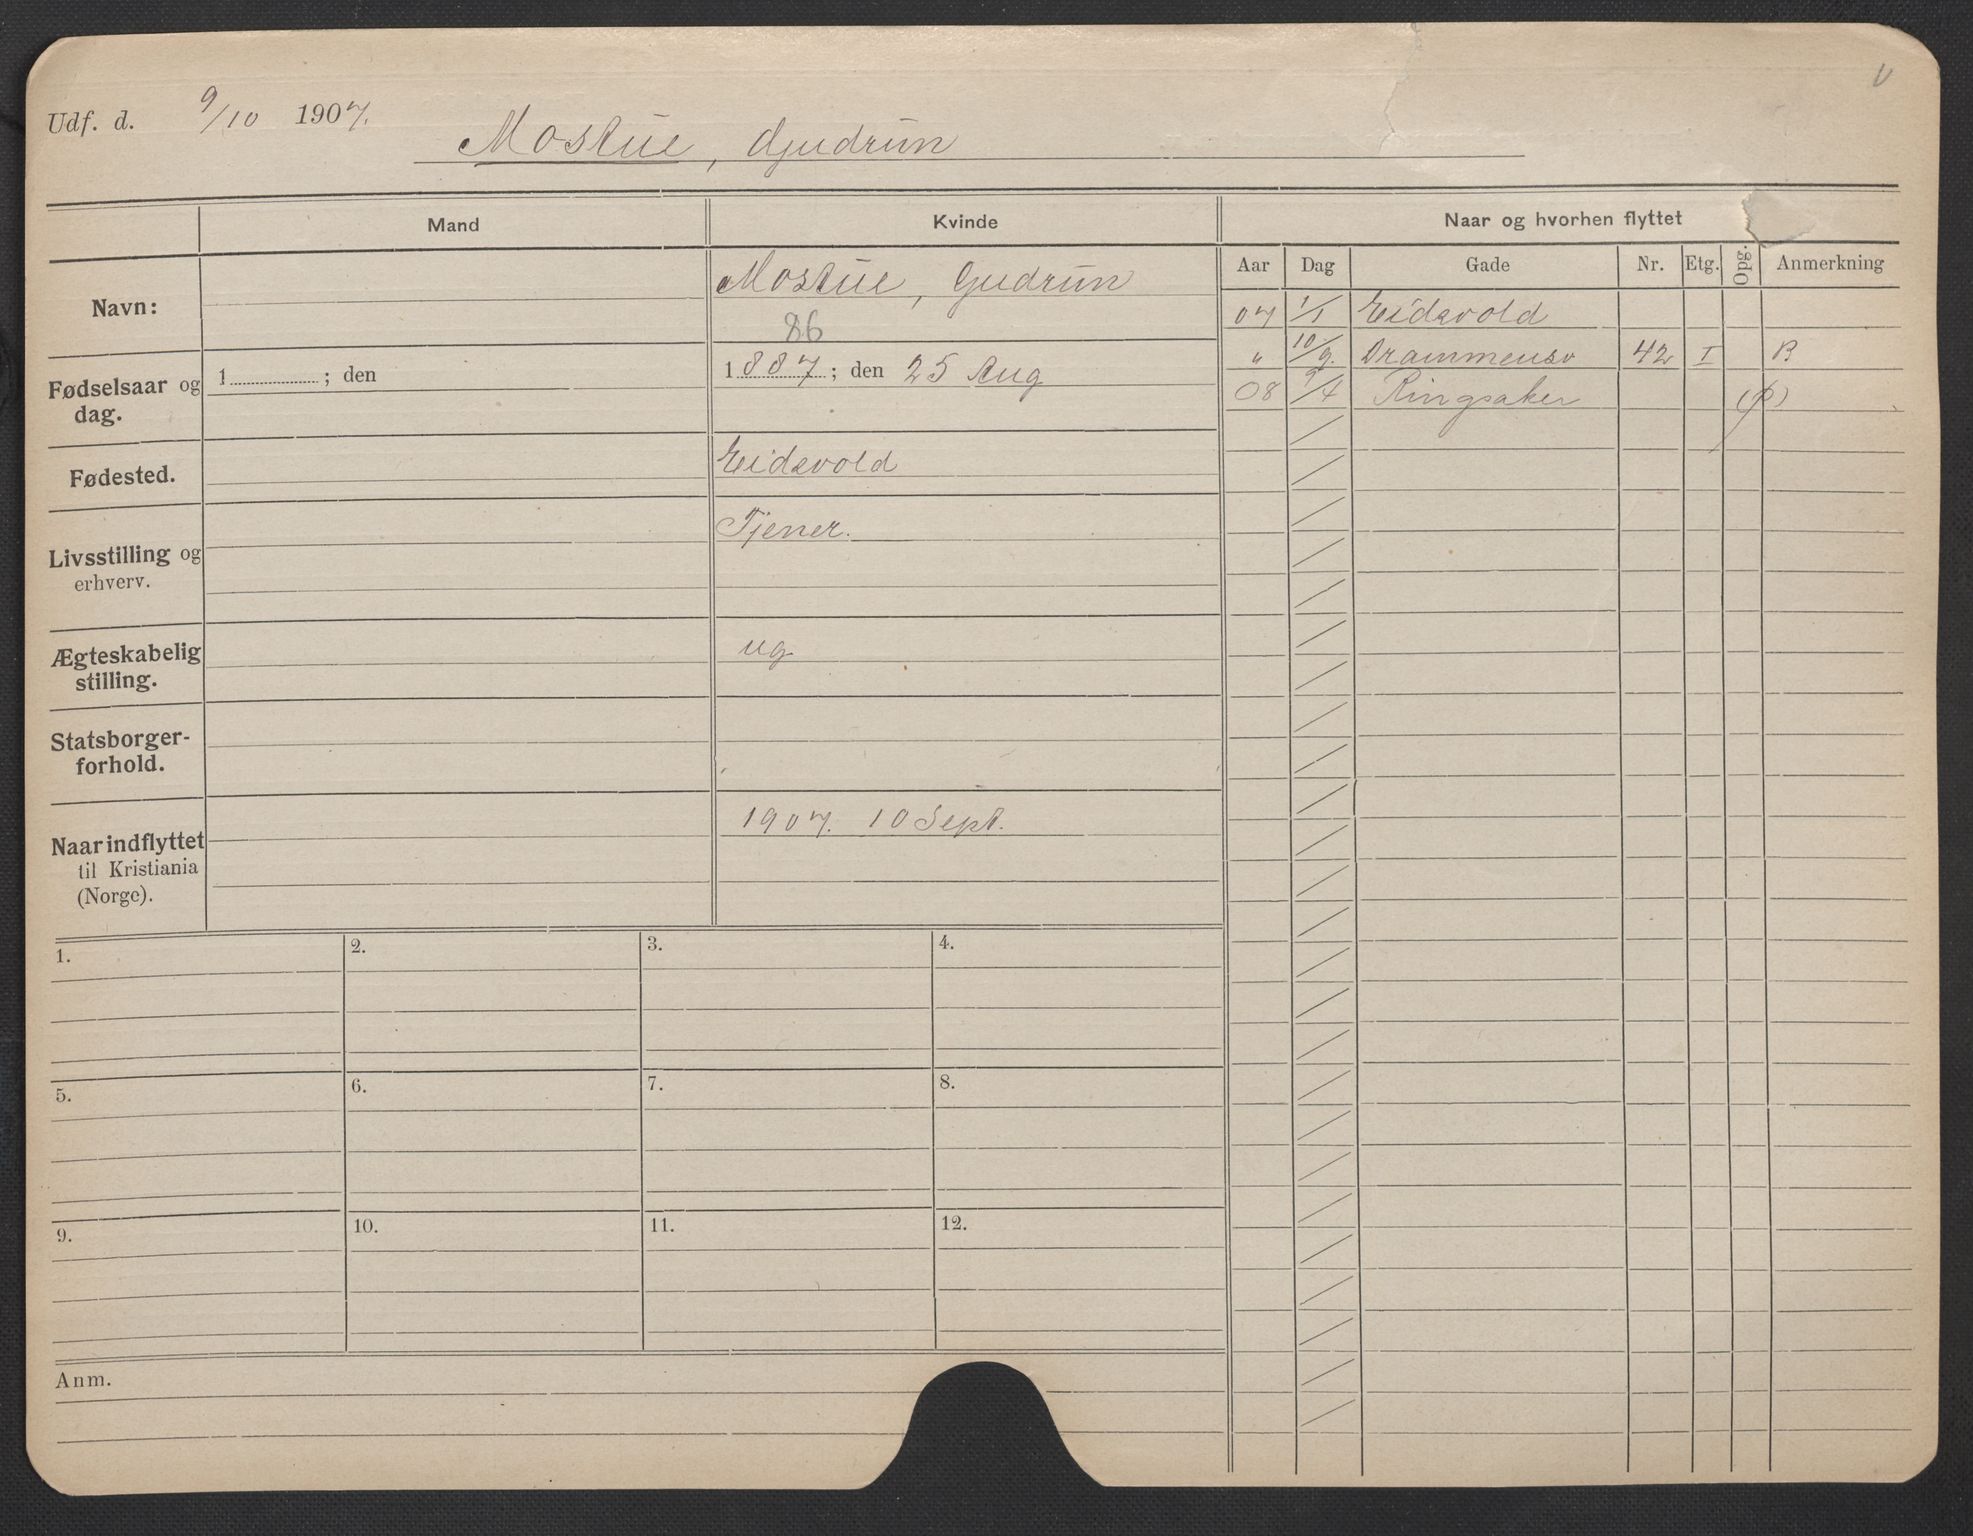 Udf. d. 9/10 1907.
Mostue, Gudrun
Mand Kvinde Naar og hvorhen flyttet
Aar Dag Gade Nr. Etg. Opg. Anmerkning
Navn: Mostue, Gudrun
86
07 1/1 Eidsvold
" 10/9. Drammensv 42 I B
08 9/4 Ringsaker (p)
Fødselsaar og dag. 1 ; den 1887; den 25 Aug
Fødested. Eidsvold
Livsstilling og erhverv. Tjener.
Ægteskabelig stilling. ug
Statsborger-
forhold.
Naar indflyttet 1907. 10 Sept.
til Kristiania
(Norge).
1. 2. 3. 4.
5. 6. 7. 8.
9. 10. 11. 12.
Anm.